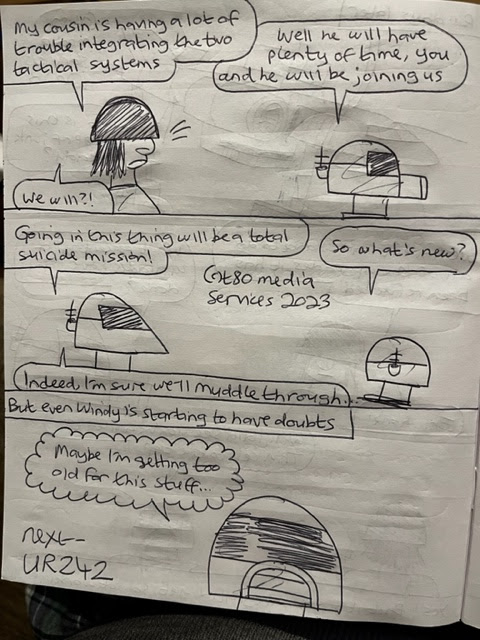 My cousin is having a lot of
trouble integrating the two
tactical systems
Well he will have
plenty of time, you
and he will be joining us
We will?!
Going in this thing will be a total
suicide mission!
So what's new?
Cat80 media
Services 2023
Indeed. I'm sure we'll muddle through...
But even Windy is starting to have doubts
Maybe I'm getting too
old for this stuff...
next-
URZ42